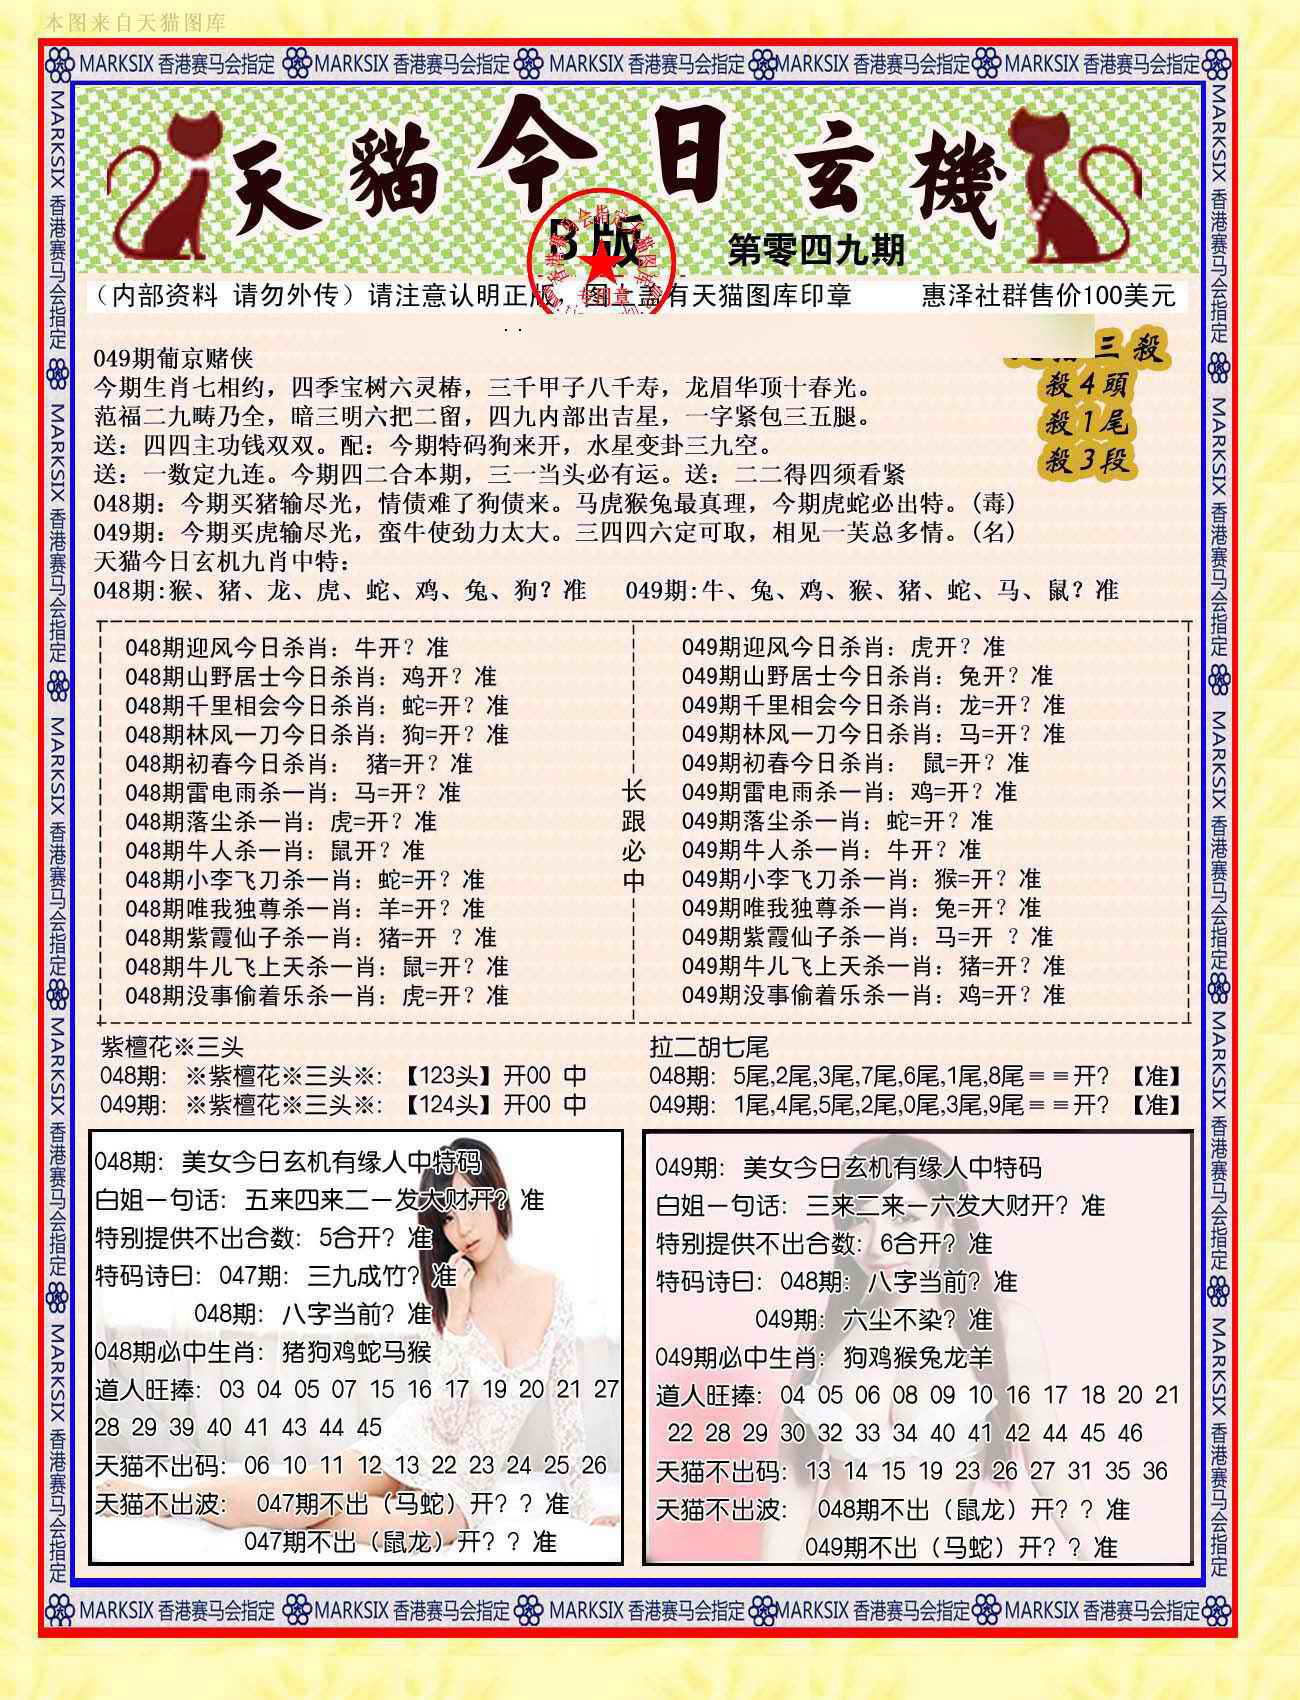 本图来自天猫图库
MARKSIX 香港赛马会指定 MARKSIX 香港赛马会指定 MARKSIX 香港赛马会指定 MARKSIX 香港赛马会指定 MARKSIX 香港赛马会指定
MARKSIX 香港赛马会指定 MARKSIX 香港赛马会指定 MARKSIX 香港赛马会指定 MARKSIX 香港赛马会指定 MARKSIX 香港赛马会指定
MARKSIX 香港赛马会指定 MARKSIX 香港赛马会指定 MARKSIX 香港赛马会指定 MARKSIX 香港赛马会指定 MARKSIX 香港赛马会指定
天貓今日玄機
B版
第零四九期
专用章
（内部资料 请勿外传）请注意认明正版，图上盖有天猫图库印章 惠泽社群售价100美元
三殺
殺4頭
殺1尾
殺3段
049期葡京赌侠
今期生肖七相约，四季宝树六灵椿，三千甲子八千寿，龙眉华顶十春光。
范福二九畴乃全，暗三明六把二留，四九内部出吉星，一字紧包三五腿。
送：四四主功钱双双。配：今期特码狗来开，水星变卦三九空。
送：一数定九连。今期四二合本期，三一当头必有运。送：二二得四须看紧
048期：今期买猪输尽光，情债难了狗债来。马虎猴兔最真理，今期虎蛇必出特。(毒)
049期：今期买虎输尽光，蛮牛使劲力太大。三四四六定可取，相见一芙总多情。(名)
天猫今日玄机九肖中特：
048期:猴、猪、龙、虎、蛇、鸡、兔、狗？准 049期:牛、兔、鸡、猴、猪、蛇、马、鼠？准
048期迎风今日杀肖：牛开？准
048期山野居士今日杀肖：鸡开？准
048期千里相会今日杀肖：蛇=开？准
048期林风一刀今日杀肖：狗=开？准
048期初春今日杀肖： 猪=开？准
048期雷电雨杀一肖：马=开？准
048期落尘杀一肖：虎=开？准
048期牛人杀一肖：鼠开？准
048期小李飞刀杀一肖：蛇=开？准
048期唯我独尊杀一肖：羊=开？准
048期紫霞仙子杀一肖：猪=开 ？准
048期牛儿飞上天杀一肖：鼠=开？准
048期没事偷着乐杀一肖：虎=开？准
长
跟
必
中
049期迎风今日杀肖：虎开？准
049期山野居士今日杀肖：兔开？准
049期千里相会今日杀肖：龙=开？准
049期林风一刀今日杀肖：马=开？准
049期初春今日杀肖： 鼠=开？准
049期雷电雨杀一肖：鸡=开？准
049期落尘杀一肖：蛇=开？准
049期牛人杀一肖：牛开？准
049期小李飞刀杀一肖：猴=开？准
049期唯我独尊杀一肖：兔=开？准
049期紫霞仙子杀一肖：马=开 ？准
049期牛儿飞上天杀一肖：猪=开？准
049期没事偷着乐杀一肖：鸡=开？准
紫檀花※三头
048期：※紫檀花※三头※：【123头】开00 中
049期：※紫檀花※三头※：【124头】开00 中
拉二胡七尾
048期：5尾,2尾,3尾,7尾,6尾,1尾,8尾≡≡开？【准】
049期：1尾,4尾,5尾,2尾,0尾,3尾,9尾≡≡开？【准】
048期：美女今日玄机有缘人中特码
白姐一句话：五来四来二一发大财开？准
特别提供不出合数：5合开？准
特码诗曰：047期：三九成竹？准
048期：八字当前？准
048期必中生肖：猪狗鸡蛇马猴
道人旺捧：03 04 05 07 15 16 17 19 20 21 27
28 29 39 40 41 43 44 45
天猫不出码：06 10 11 12 13 22 23 24 25 26
天猫不出波： 047期不出（马蛇）开？？准
047期不出（鼠龙）开？？准
049期：美女今日玄机有缘人中特码
白姐一句话：三来二来一六发大财开？准
特别提供不出合数：6合开？准
特码诗曰：048期：八字当前？准
049期：六尘不染？准
049期必中生肖：狗鸡猴兔龙羊
道人旺捧：04 05 06 08 09 10 16 17 18 20 21
22 28 29 30 32 33 34 40 41 42 44 45 46
天猫不出码：13 14 15 19 23 26 27 31 35 36
天猫不出波： 048期不出（鼠龙）开？？准
049期不出（马蛇）开？？准
MARKSIX 香港赛马会指定 MARKSIX 香港赛马会指定 MARKSIX 香港赛马会指定 MARKSIX 香港赛马会指定 MARKSIX 香港赛马会指定